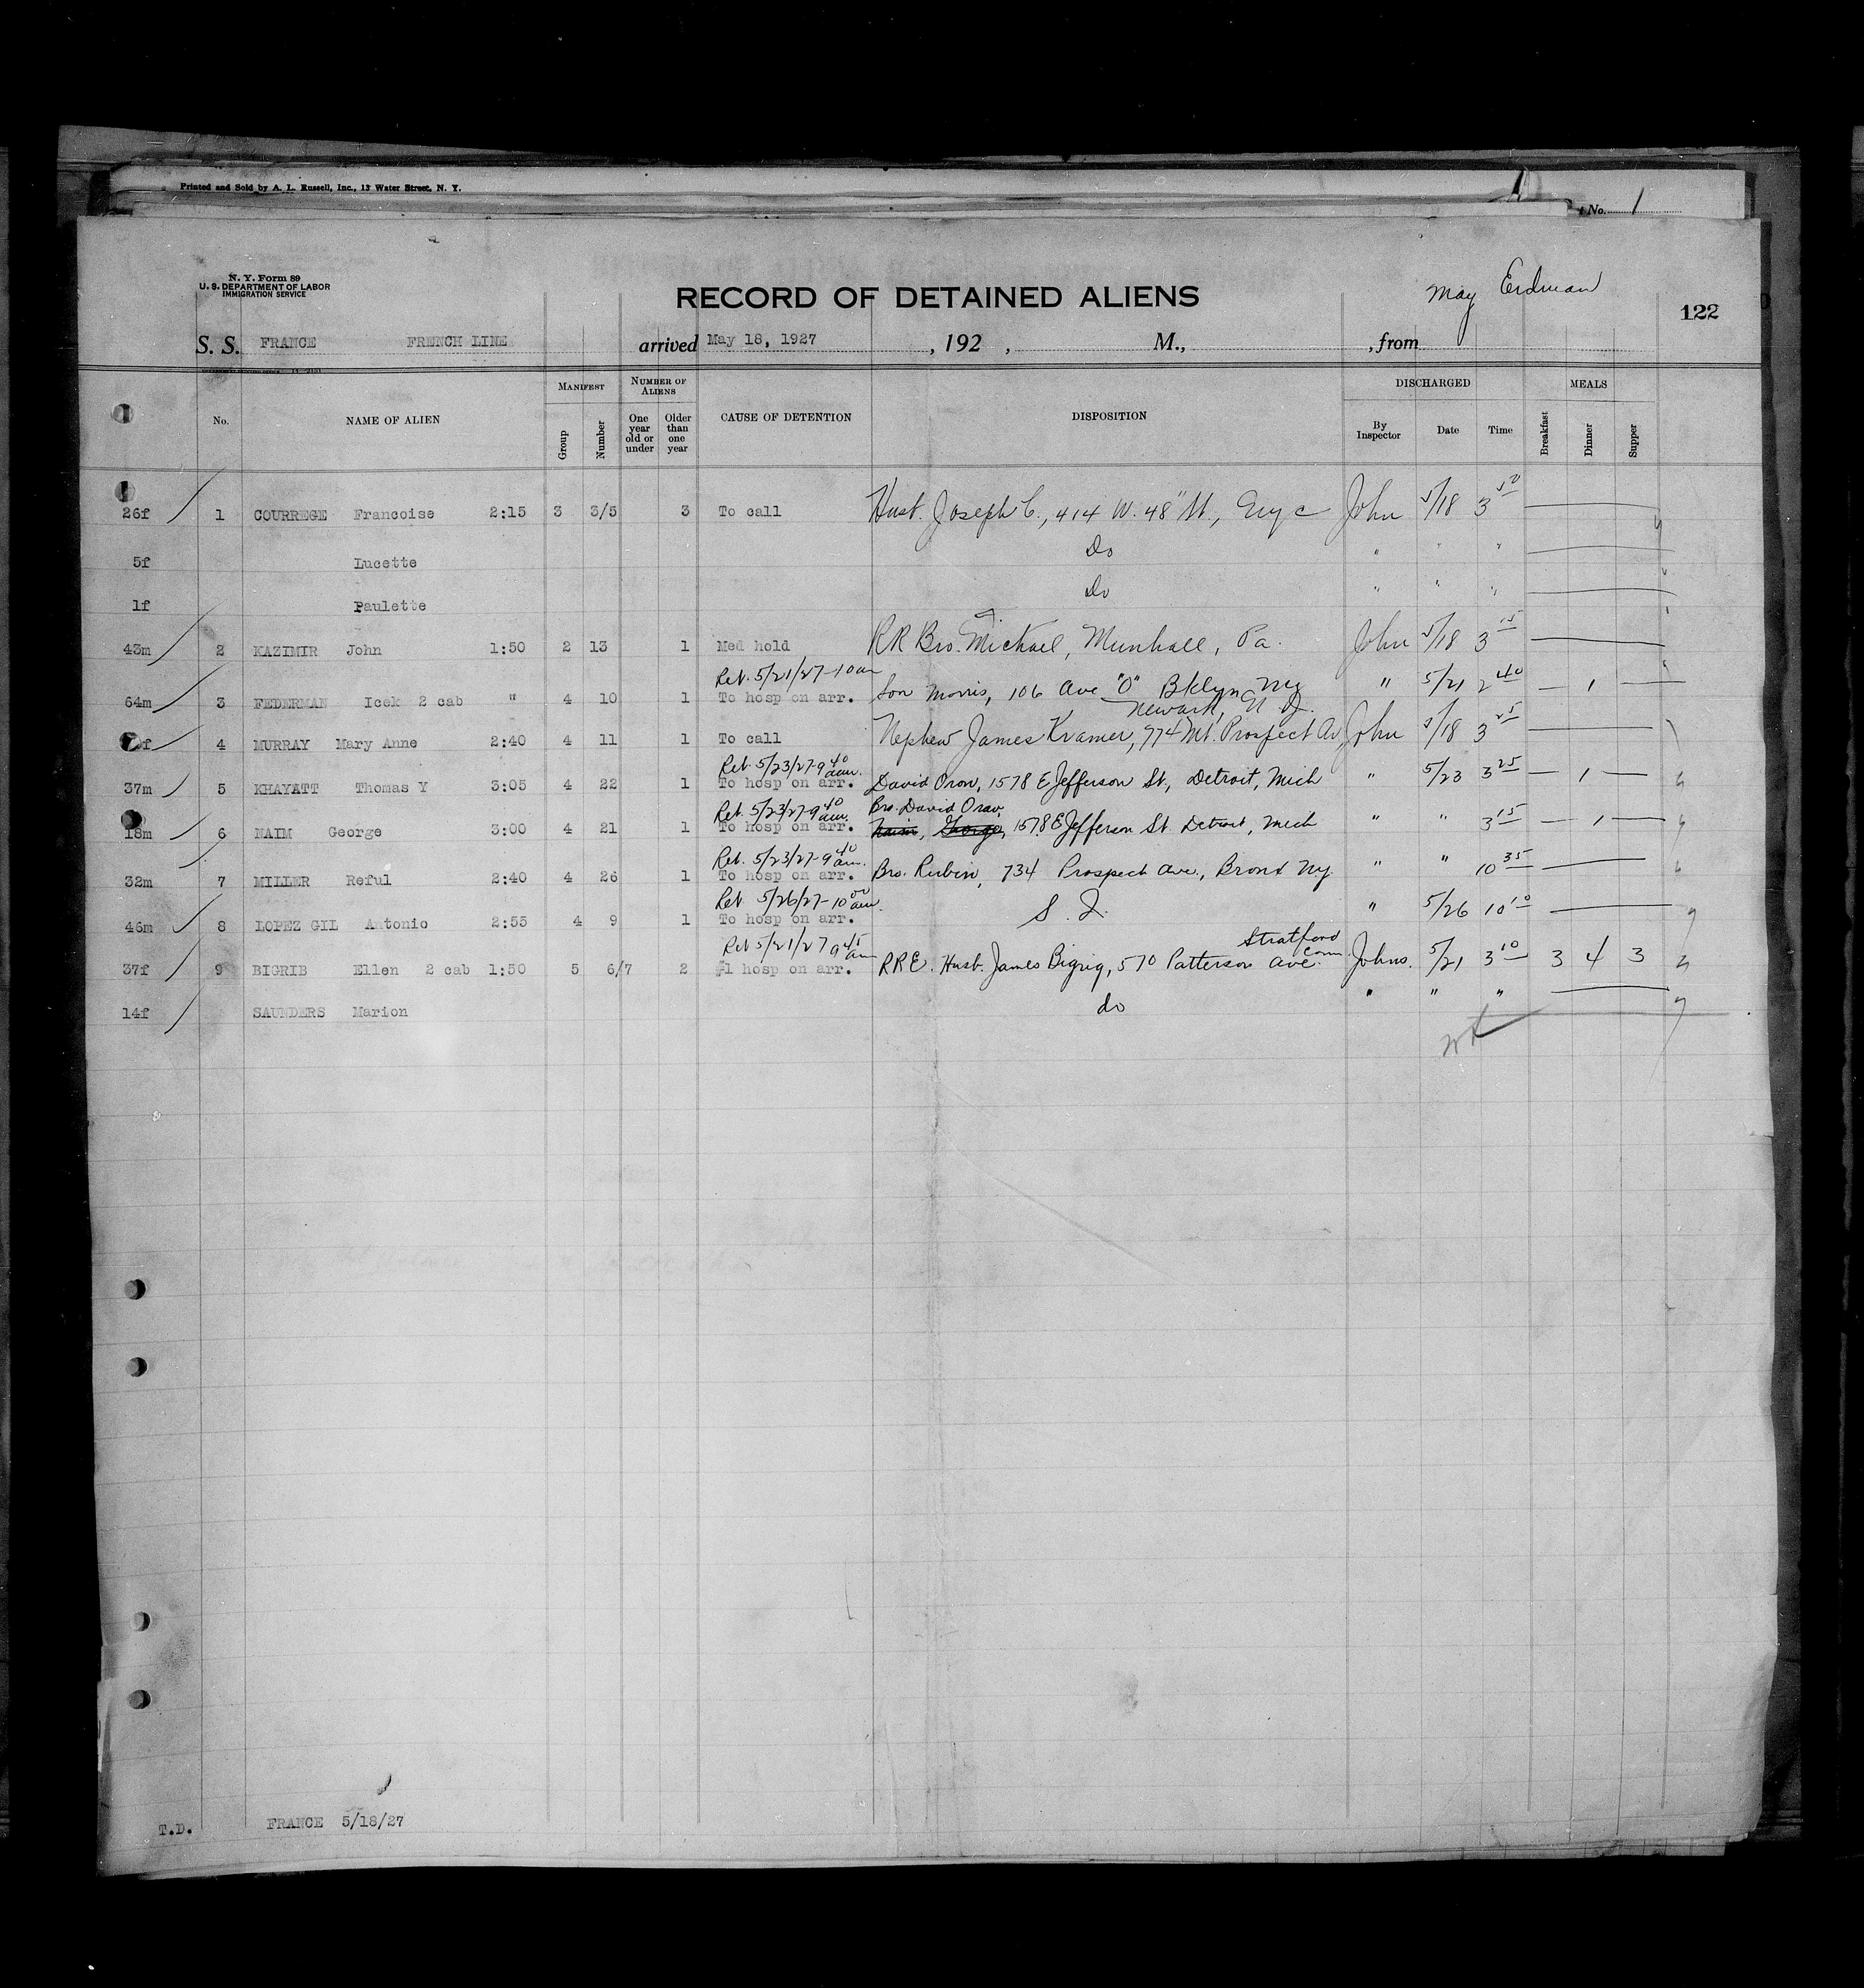 Printed and Sold by A. L. Russell, Inc., 13 Water Street, N. Y.
No. 1
N. Y. Form 89
U. S. DEPARTMENT OF LABOR
IMMIGRATION SERVICE
RECORD OF DETAINED ALIENS
May Erdman
122
S. S. FRANCE FRENCH LINE arrived May 18, 1927, 192 , M., , from
No. NAME OF ALIEN MANIFEST Group Number NUMBER OF ALIENS One year old or under Older than one year CAUSE OF DETENTION DISPOSITION DISCHARGED By Inspector Date Time MEALS Breakfast Dinner Supper
26f 1 COURREGE Francoise 2:15 3 3/5 3 To call Hust. Joseph C., 414 W. 48" St., John 5/18 3 50
5f Lucette Do " " "
1f Paulette Do " " "
43m 2 KAZIMIR John 1:50 2 13 1 Med hold RR Bro. Michael, Munhall, Pa. John 5/18 3 15
Ret. 5/21/27-10am
64m 3 FEDERMAN Icek 2 cab " 4 10 1 To hosp on arr. Son Morris, 106 Ave "O" Bklyn NY " 5/21 2 40 — 1 —
Newark, N. J.
4 MURRAY Mary Anne 2:40 4 11 1 To call Nephew James Kramer, 974 Mt. Prospect Av, John 5/18 3 25
Ret. 5/23/27-9 40 am.
37m 5 KHAYATT Thomas Y 3:05 4 22 1 To hosp on arr. David Oron, 1578 E Jefferson St., Detroit, Mich " 5/23 3 25 — 1 —
Ret. 5/23/27-9 40 am. Bro. David Orav,
18m 6 NAIM George 3:00 4 21 1 To hosp on arr. Naim, George, 1578 E Jefferson St. Detroit, Mich " " 3 15 — 1 —
Ret. 5/23/27-9 40 am.
32m 7 MILLER Reful 2:40 4 26 1 To hosp on arr. Bro. Rubin, 734 Prospect Ave., Bronx NY. " " 10 35
Ret 5/26/27-10 00 am.
46m 8 LOPEZ GIL Antonio 2:55 4 9 1 To hosp on arr. S. I. " 5/26 10 10
Ret 5/21/27 9 45 am Stratford Conn
37f 9 BIGRIB Ellen 2 cab 1:50 5 6/7 2 #1 hosp on arr. RRE. Husb. James Bigrig, 570 Patterson Ave. Johns. 5/21 3 10 3 4 3
14f SAUNDERS Marion do " " "
T.D. FRANCE 5/18/27